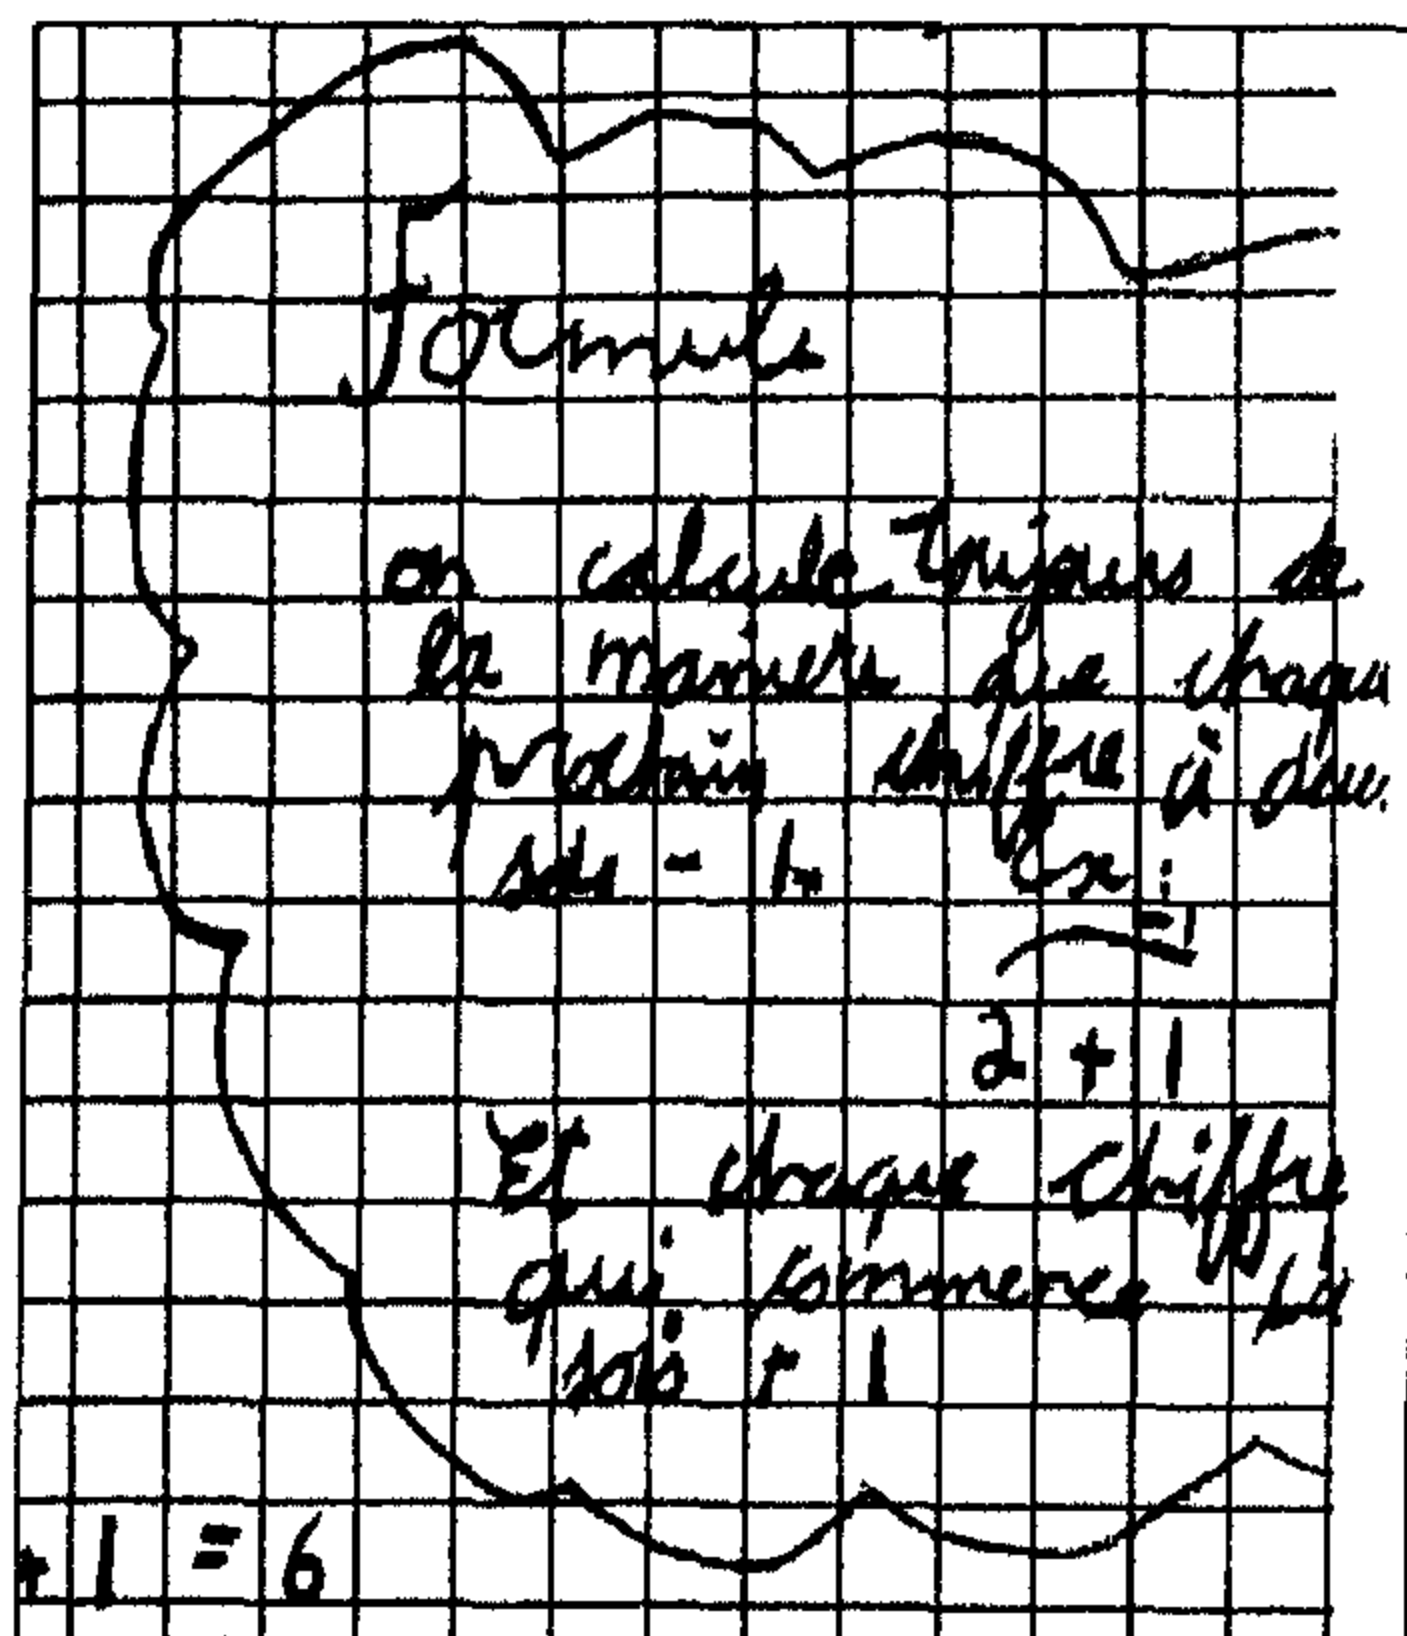 Formule
on calcule toujours de
la maniere que chaque
prochain chiffre à
soi - 1. Ex:
-1
2 + 1
Et chaque chiffre
qui commence
sois + 1
+ 1 = 6